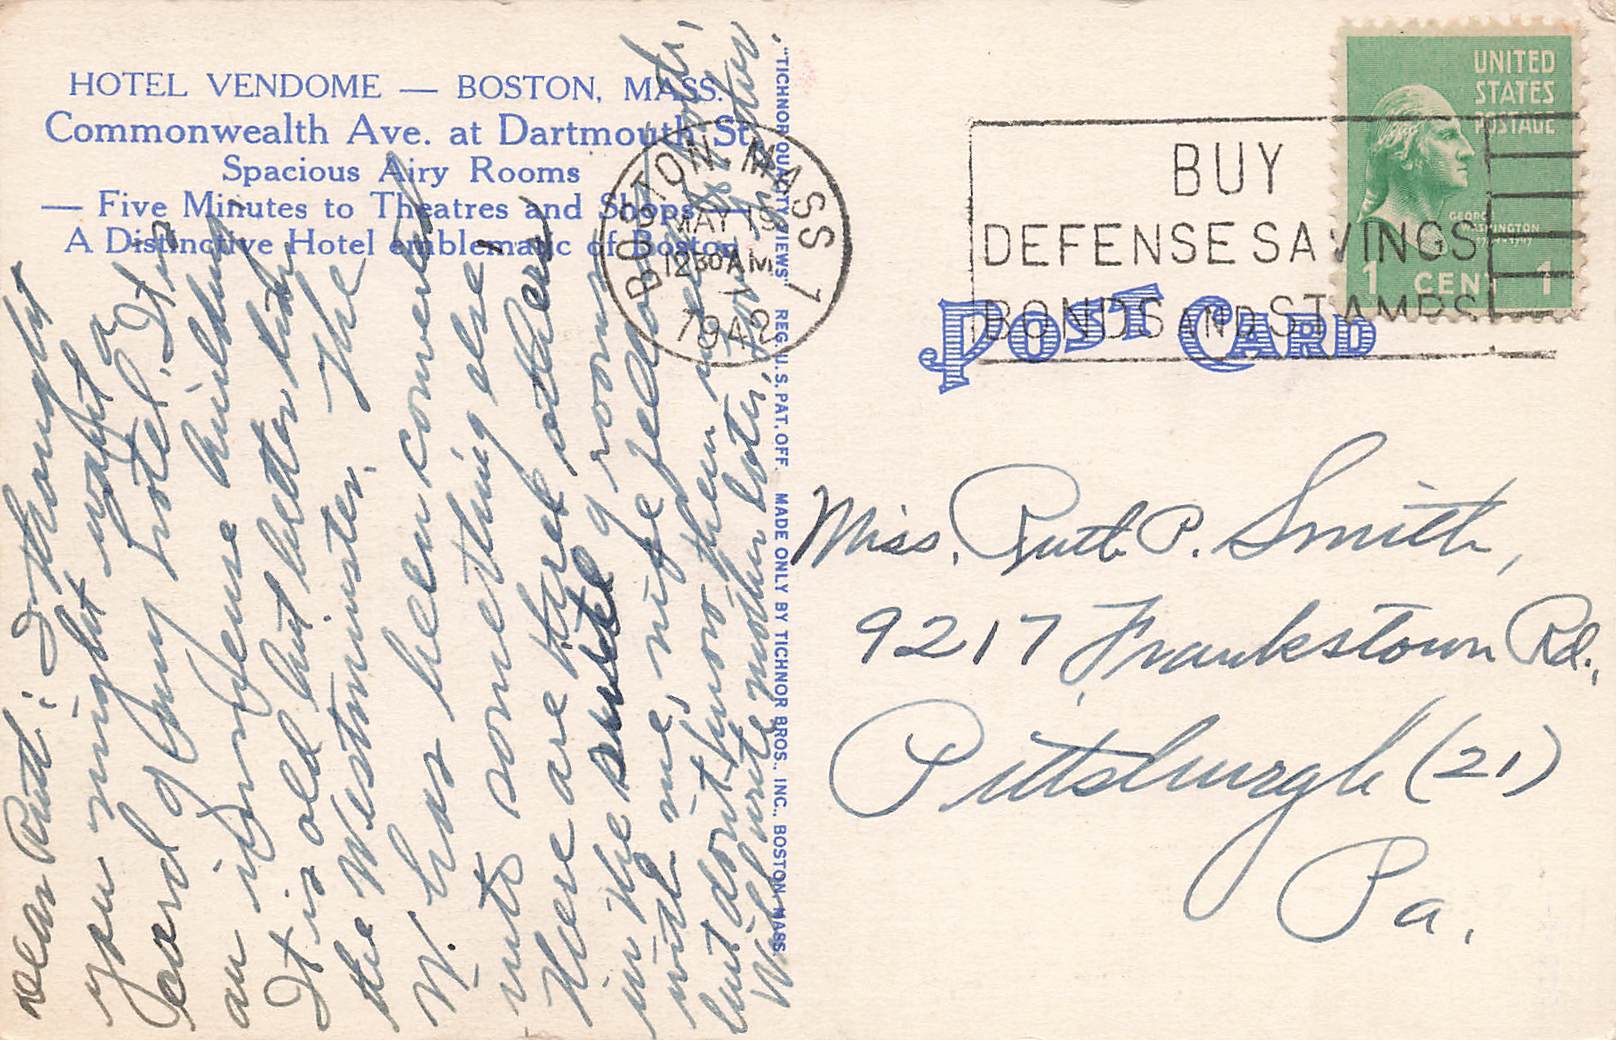 HOTEL VENDOME — BOSTON, MASS.
Commonwealth Ave. at Dartmouth St.
Spacious Airy Rooms
— Five Minutes to Theatres and Shops —
A Distinctive Hotel emblematic of Boston
Dear Ruth: I thought
you might want a
card of my hotel. It is
an immense building.
It is old but better than
the Westminster. The
W. has been converted
into something else.
There are three others
in the suite of rooms
with me, nice fellows
but don't know them well both,
Will write mother later,
"TICHNOR QUALITY VIEWS," REG. U. S. PAT. OFF. MADE ONLY BY TICHNOR BROS., INC., BOSTON, MASS.
BOSTON, MASS 1
MAY 19
1230 AM
1942
BUY
DEFENSE SAVINGS
BONDS AND STAMPS
UNITED
STATES
POSTAGE
GEORGE
WASHINGTON
1 CENT 1
POST CARD
Miss. Ruth P. Smith,
9217 Frankstown Rd.,
Pittsburgh (21)
Pa.